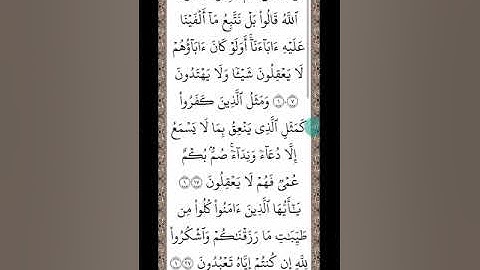 ٱللَّهُ قَالُوا۟ بَلْ نَتَّبِعُ مَآ أَلْفَيْنَا
عَلَيْهِ ءَابَآءَنَآ ۗ أَوَلَوْ كَانَ ءَابَآؤُهُمْ
لَا يَعْقِلُونَ شَيْـًٔا وَلَا يَهْتَدُونَ
وَمَثَلُ ٱلَّذِينَ كَفَرُوا۟
كَمَثَلِ ٱلَّذِى يَنْعِقُ بِمَا لَا يَسْمَعُ
إِلَّا دُعَآءً وَنِدَآءً ۚ صُمٌّۢ بُكْمٌ
عُمْىٌ فَهُمْ لَا يَعْقِلُونَ
يَـٰٓأَيُّهَا ٱلَّذِينَ ءَامَنُوا۟ كُلُوا۟ مِن
طَيِّبَـٰتِ مَا رَزَقْنَـٰكُمْ وَٱشْكُرُوا۟
لِلَّهِ إِن كُنتُمْ إِيَّاهُ تَعْبُدُونَ